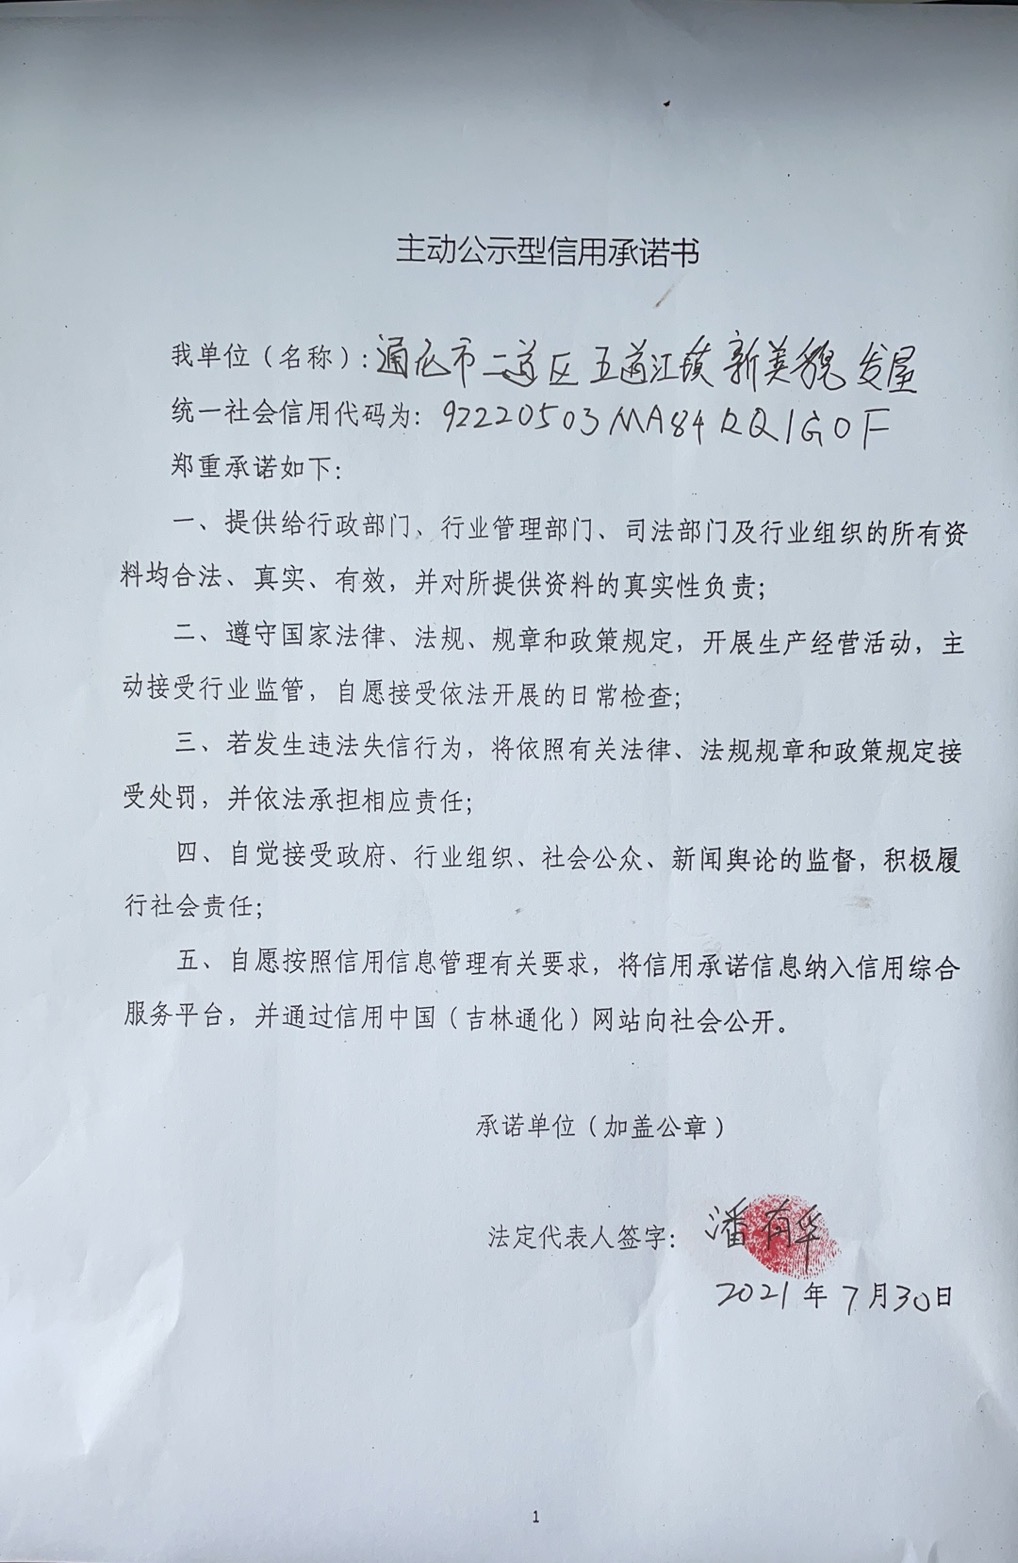 主动公示型信用承诺书
我单位（名称）：通化市二道区五道江镇新美貌发屋
统一社会信用代码为：92220503MA84RQ1G0F
郑重承诺如下：
一、提供给行政部门、行业管理部门、司法部门及行业组织的所有资
料均合法、真实、有效，并对所提供资料的真实性负责；
二、遵守国家法律、法规、规章和政策规定，开展生产经营活动，主
动接受行业监管，自愿接受依法开展的日常检查；
三、若发生违法失信行为，将依照有关法律、法规规章和政策规定接
受处罚，并依法承担相应责任；
四、自觉接受政府、行业组织、社会公众、新闻舆论的监督，积极履
行社会责任；
五、自愿按照信用信息管理有关要求，将信用承诺信息纳入信用综合
服务平台，并通过信用中国（吉林通化）网站向社会公开。
承诺单位（加盖公章）
法定代表人签字：潘有华
2021年7月30日
1